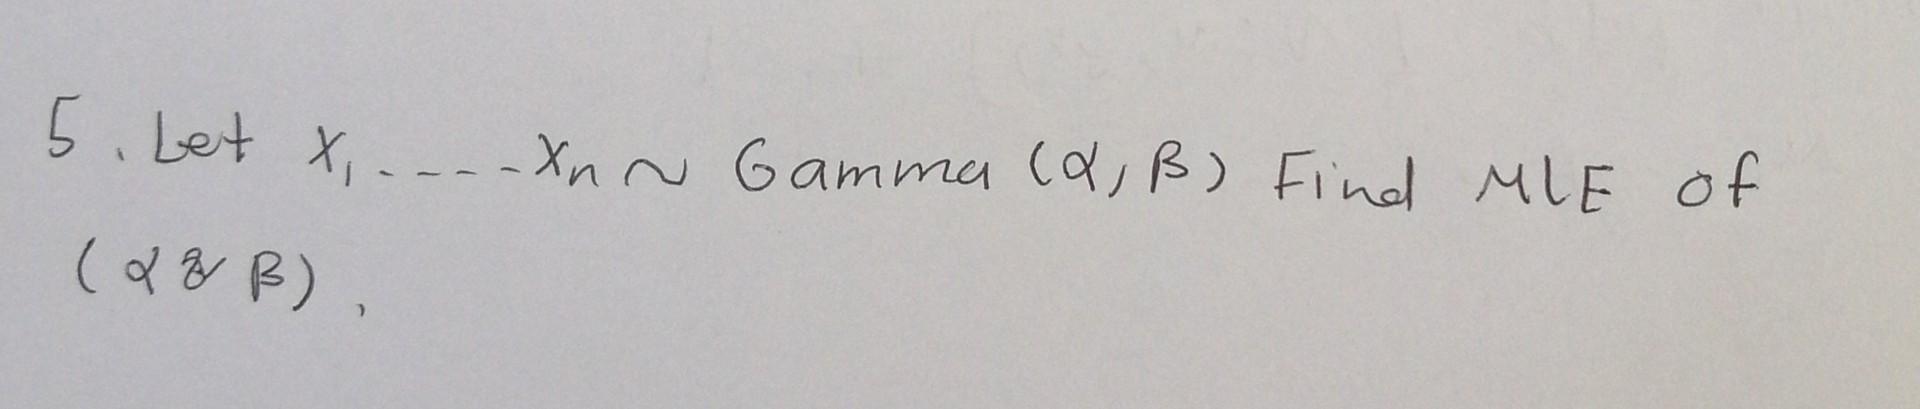 5. Let x₁.----xₙ ~ Gamma (α, β) Find MLE of
(α & β).